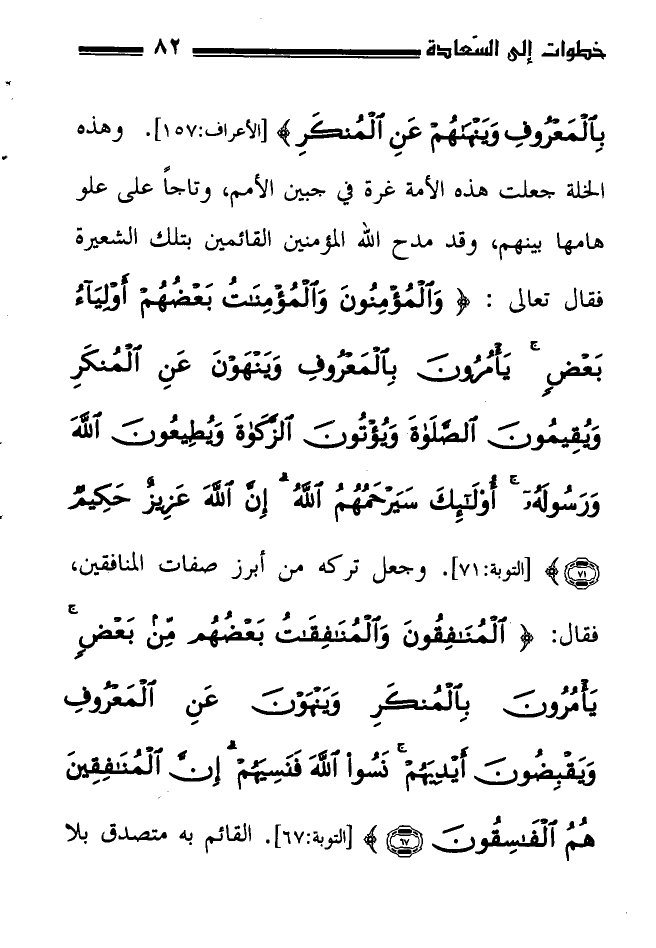 خطوات إلى السعادة ٨٢
بِٱلْمَعْرُوفِ وَيَنْهَىٰهُمْ عَنِ ٱلْمُنكَرِ ﴾ [الأعراف:١٥٧]. وهذه
الخلة جعلت هذه الأمة غرة في جبين الأمم، وتاجاً على علو
هامها بينهم، وقد مدح الله المؤمنين القائمين بتلك الشعيرة
فقال تعالى : ﴿ وَٱلْمُؤْمِنُونَ وَٱلْمُؤْمِنَٰتُ بَعْضُهُمْ أَوْلِيَآءُ
بَعْضٍ ۚ يَأْمُرُونَ بِٱلْمَعْرُوفِ وَيَنْهَوْنَ عَنِ ٱلْمُنكَرِ
وَيُقِيمُونَ ٱلصَّلَوٰةَ وَيُؤْتُونَ ٱلزَّكَوٰةَ وَيُطِيعُونَ ٱللَّهَ
وَرَسُولَهُۥٓ ۚ أُوْلَٰٓئِكَ سَيَرْحَمُهُمُ ٱللَّهُ ۗ إِنَّ ٱللَّهَ عَزِيزٌ حَكِيمٌ
٧١ ﴾ [التوبة:٧١]. وجعل تركه من أبرز صفات المنافقين،
فقال: ﴿ ٱلْمُنَٰفِقُونَ وَٱلْمُنَٰفِقَٰتُ بَعْضُهُم مِّنۢ بَعْضٍ ۚ
يَأْمُرُونَ بِٱلْمُنكَرِ وَيَنْهَوْنَ عَنِ ٱلْمَعْرُوفِ
وَيَقْبِضُونَ أَيْدِيَهُمْ ۚ نَسُوا۟ ٱللَّهَ فَنَسِيَهُمْ ۗ إِنَّ ٱلْمُنَٰفِقِينَ
هُمُ ٱلْفَٰسِقُونَ ٦٧ ﴾ [التوبة:٦٧]. القائم به متصدق بلا